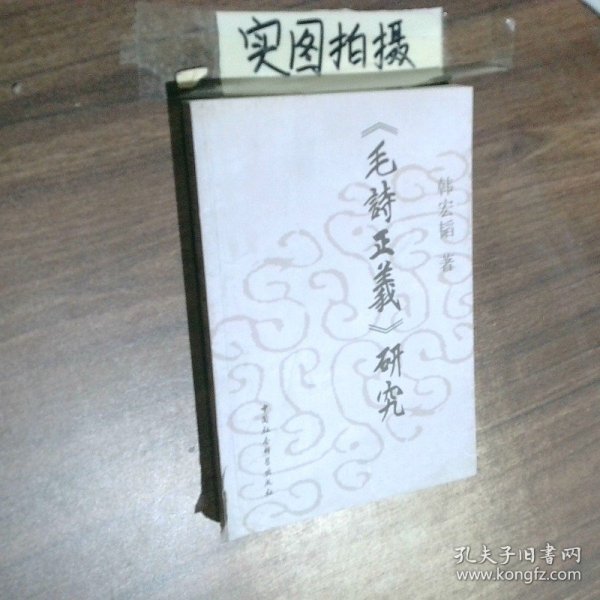 实图拍摄
《毛詩正義》研究
韩宏韬 著
中国社会科学出版社
孔夫子旧书网
www.kongfz.com